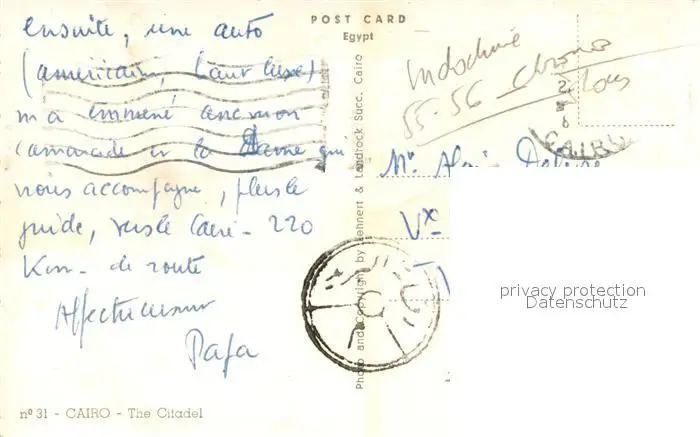 ensuite, une auto
(américaine, haut luxe)
m'a emmené avec mon
camarade et la Dame qui
nous accompagne, plus le
guide, vers le Caire - 220
Km - de route
Affectueusement
Papa
nº 31 - CAIRO - The Citadel
POST CARD
Egypt
Photo and Copyright by Lehnert & Landrock Succ. Cairo
Indochine
55-56
CAIRO
Mr. Alain
Vx
privacy protection
Datenschutz